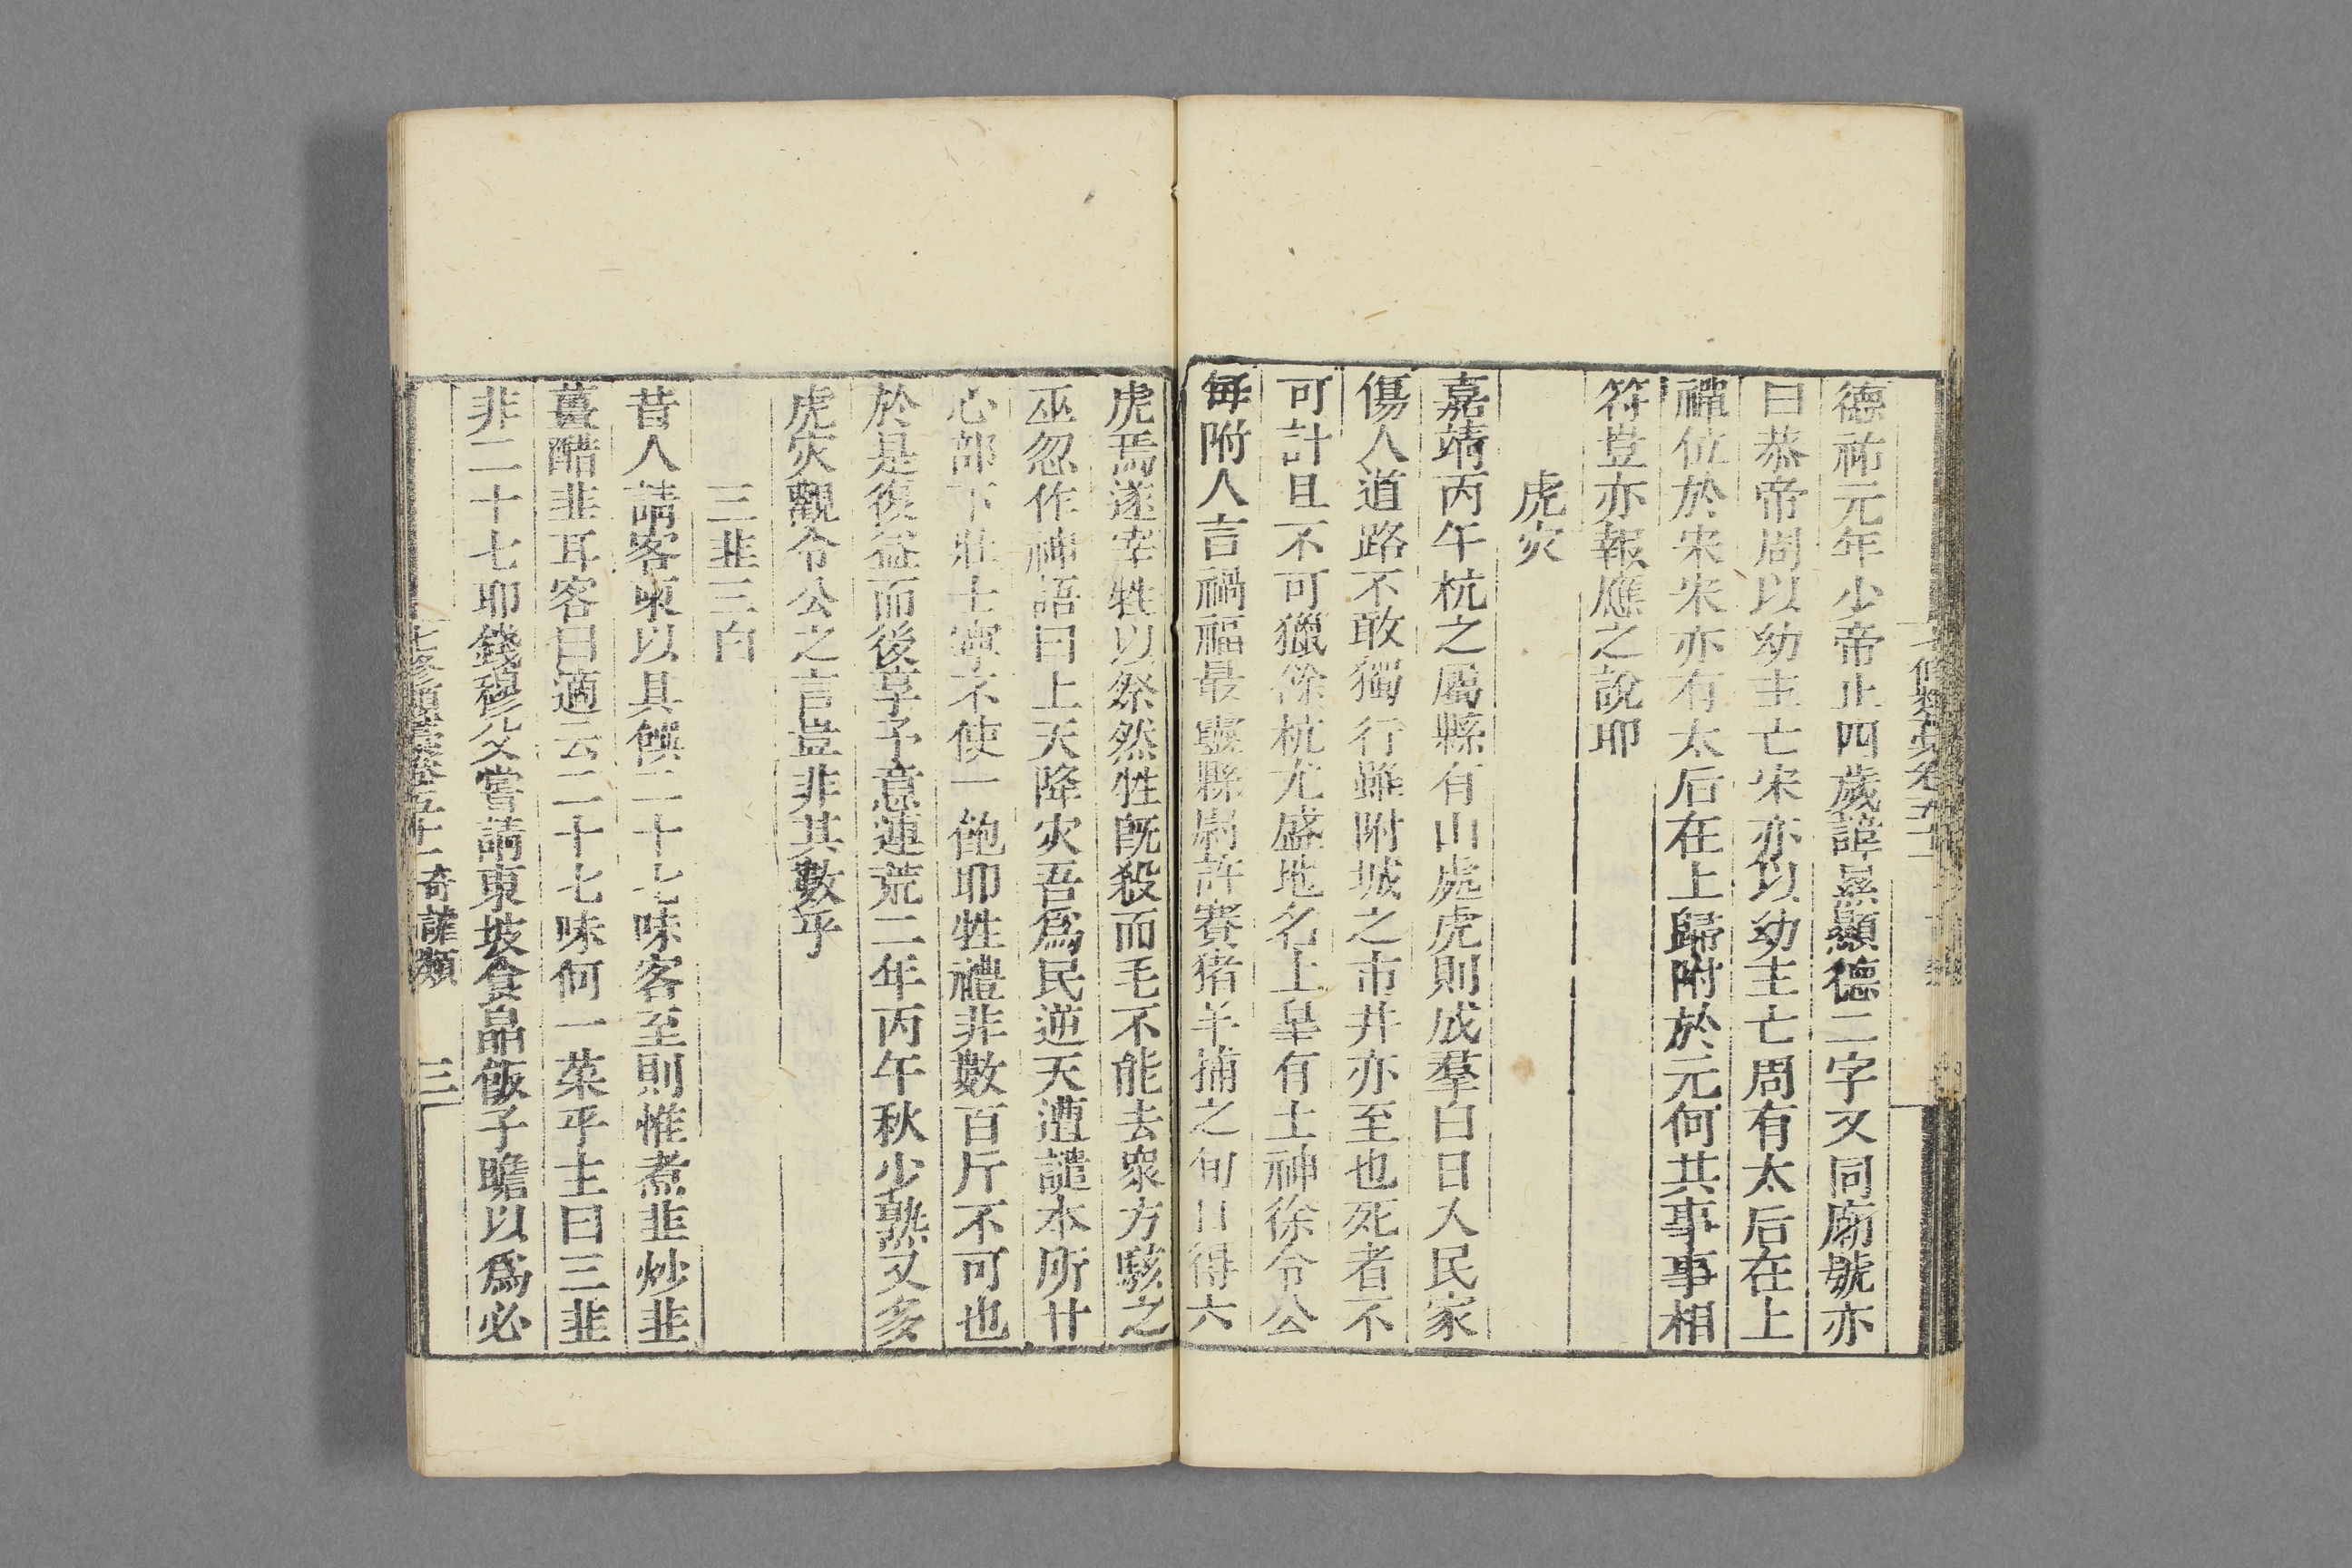 德祐元年少帝止四歲諱㬎顯德二字又同廟號亦
曰恭帝周以幼主亡宋亦以幼主亡周有太后在上
禪位於宋宋亦有太后在上歸附於元何其事事相
符豈亦報應之說耶
虎灾
嘉靖丙午杭之屬縣有山處虎則成羣白日人民家
傷人道路不敢獨行雖附城之市井亦至也死者不
可計且不可獵餘杭尤盛地名上㚖有土神徐令公
每附人言禍福最靈縣尉許賽猪羊捕之旬日得六
虎焉遂宰牲以祭然牲旣殺而毛不能去衆方駭之
巫忽作神語曰上天降灾吾爲民逆天遭譴本所甘
心部下壯士寧不使一飽耶牲禮非數百斤不可也
於是復益而後享予意連荒二年丙午秋少熟又多
虎灾觀令公之言豈非其數乎
三韭三白
昔人請客柬以具饌二十七味客至則惟煮韭炒韭
薑醋韭耳客曰適云二十七味何一菜乎主曰三韭
非二十七耶錢穆父嘗請東坡食皛飯子瞻以爲必
七修類藁卷五十一奇謔類 三